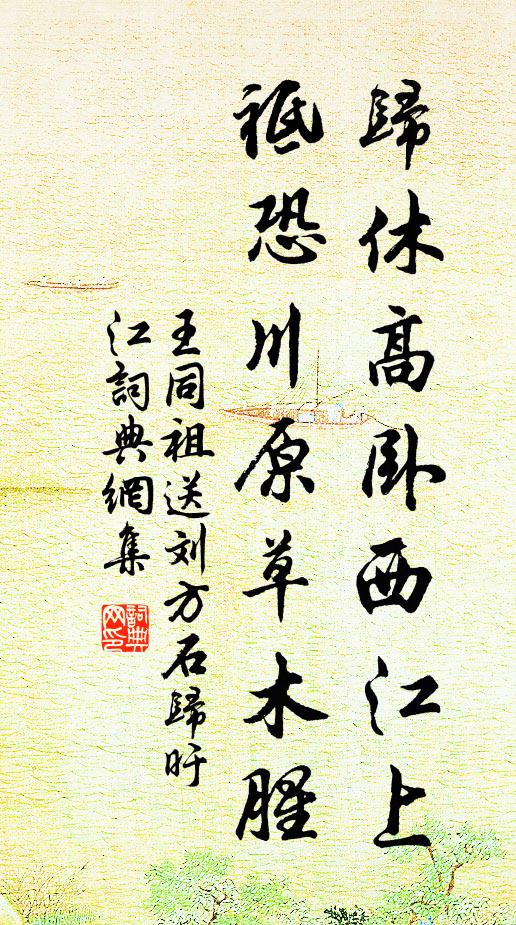 歸休高卧西江上
祗恐川原草木腥
王同祖送刘方石歸盱
江詞典網集
詞典
网印